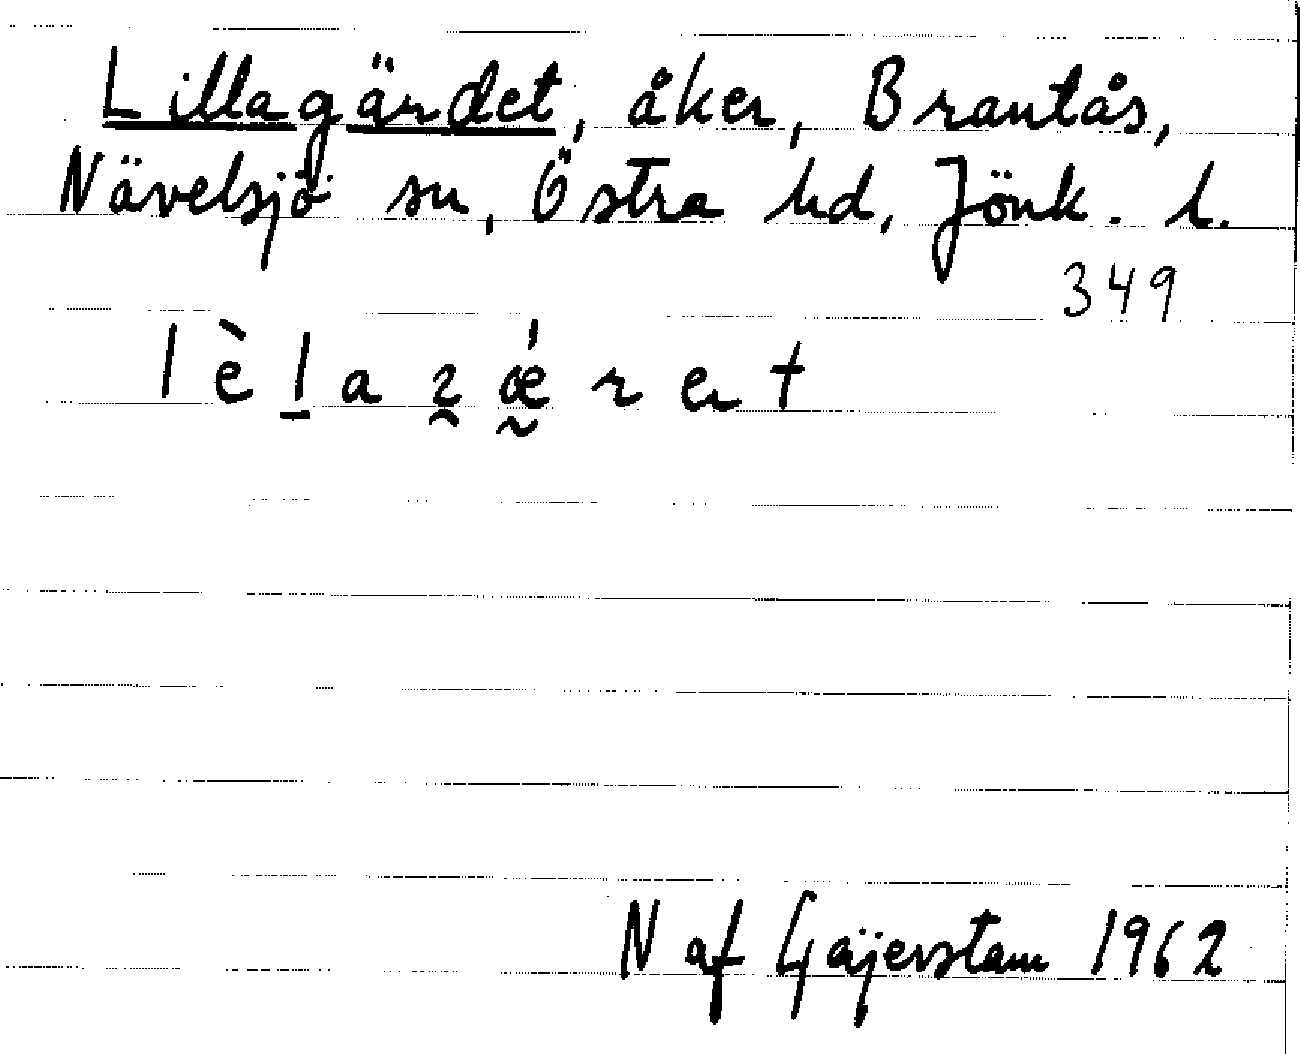 Lillagärdet, åker, Brantås,
Nävelsjö sn, Östra hd, Jönk. l.
349
N af Gäijerstam 1962